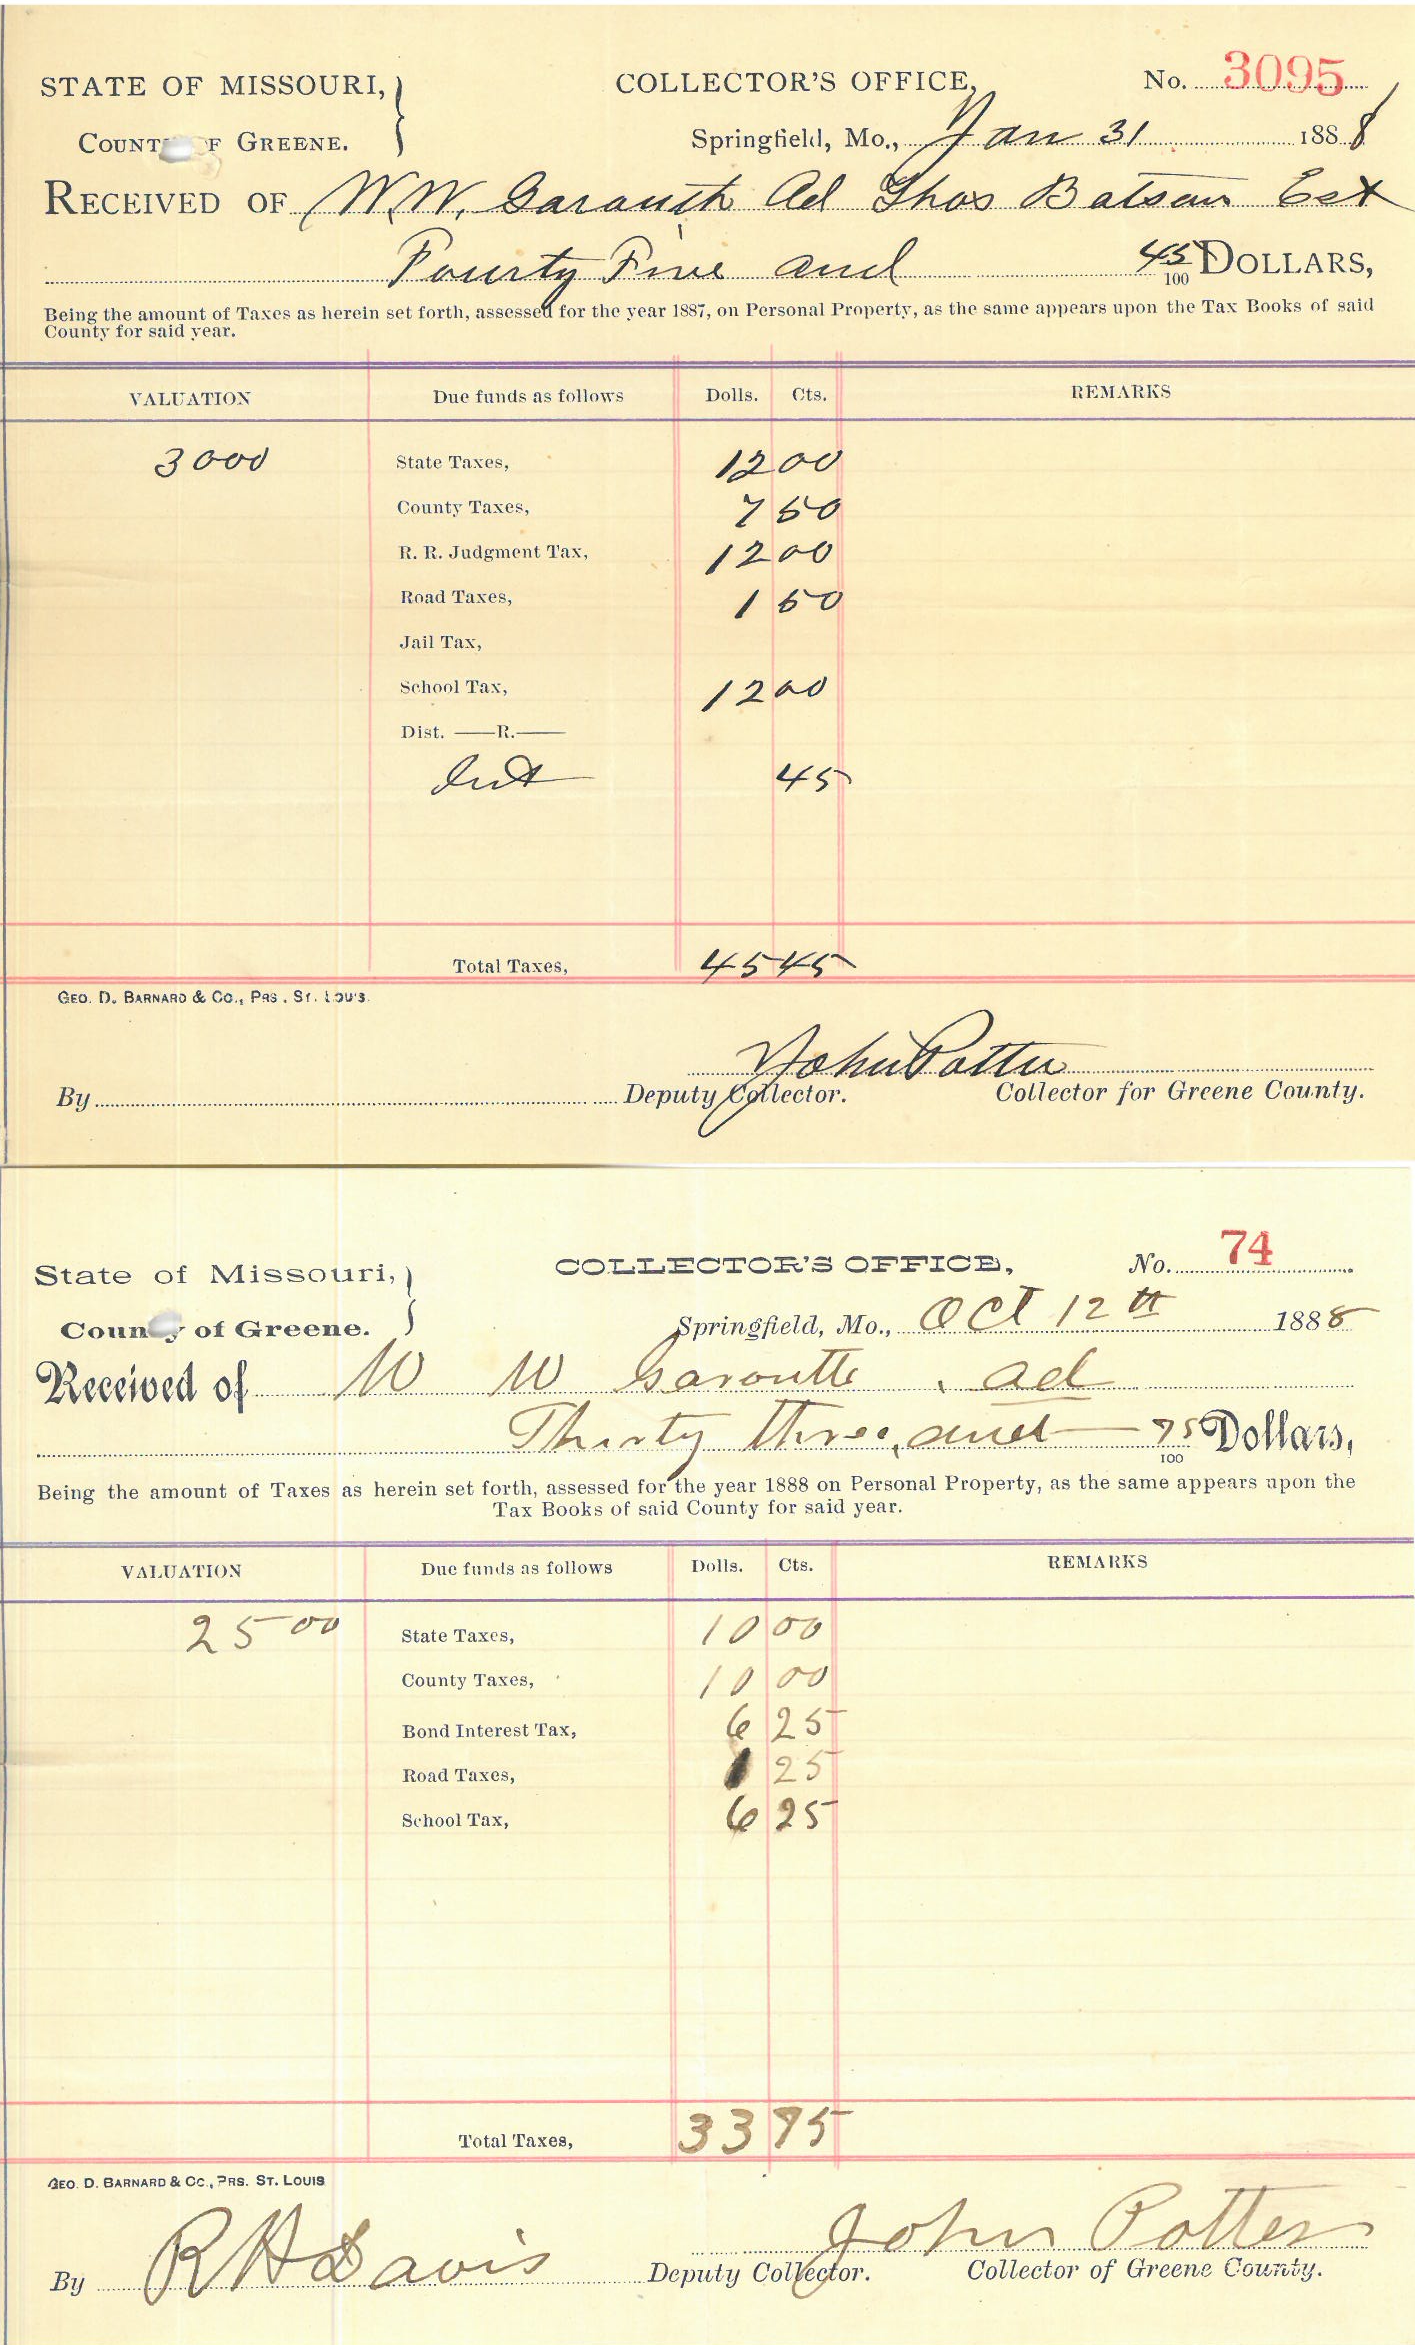 STATE OF MISSOURI, COLLECTOR'S OFFICE, No. 3095
COUNT F GREENE. Springfield, Mo., Jan 31 1888
RECEIVED OF W.W. Garoutte Ad Thos Batson Est
Fourty Five and 45/100 DOLLARS,
Being the amount of Taxes as herein set forth, assessed for the year 1887, on Personal Property, as the same appears upon the Tax Books of said
County for said year.
VALUATION Due funds as follows Dolls. Cts. REMARKS
3000 State Taxes, 12 00
County Taxes, 7 50
R. R. Judgment Tax, 12 00
Road Taxes, 1 50
Jail Tax,
School Tax, 12 00
Dist. ——R.——
Int 45
Total Taxes, 45 45
GEO. D. BARNARD & CO., PRS. ST. LOUIS.
John Potter
By Deputy Collector. Collector for Greene County.
State of Missouri, COLLECTOR'S OFFICE, No. 74
Coun y of Greene. Springfield, Mo., Oct 12th 1888
Received of W W Garoutte . ad
Thirty three, and — 75/100 Dollars,
Being the amount of Taxes as herein set forth, assessed for the year 1888 on Personal Property, as the same appears upon the
Tax Books of said County for said year.
VALUATION Due funds as follows Dolls. Cts. REMARKS
2500 State Taxes, 10 00
County Taxes, 10 00
Bond Interest Tax, 6 25
Road Taxes, 1 25
School Tax, 6 25
Total Taxes, 33 75
GEO. D. BARNARD & CO., PRS. ST. LOUIS
By R H Davis Deputy Collector. John Potter Collector of Greene County.